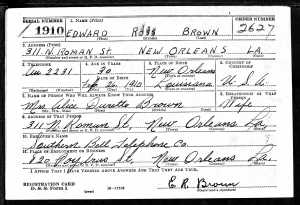 SERIAL NUMBER 1. NAME (Print) ORDER NUMBER
1910 EDWARD ROSS BROWN 2627
2. ADDRESS (Print)
311 N. ROMAN ST. NEW ORLEANS LA.
3. TELEPHONE 4. AGE IN YEARS 5. PLACE OF BIRTH 6. COUNTRY OF CITIZENSHIP
2231 30 New Orleans
DATE OF BIRTH
1910 Louisiana U. S. A.
7. NAME OF PERSON WHO WILL ALWAYS KNOW YOUR ADDRESS 8. RELATIONSHIP OF THAT PERSON
Mrs. Alice Brown Wife
9. ADDRESS OF THAT PERSON
311 N. Roman St. New Orleans La.
10. EMPLOYER'S NAME
Southern Bell Telephone Co.
11. PLACE OF EMPLOYMENT OR BUSINESS
820 Poydras St. New Orleans La.
I AFFIRM THAT I HAVE VERIFIED ABOVE ANSWERS AND THAT THEY ARE TRUE.
REGISTRATION CARD
D. S. S. Form 1 (over)
E. R. Brown